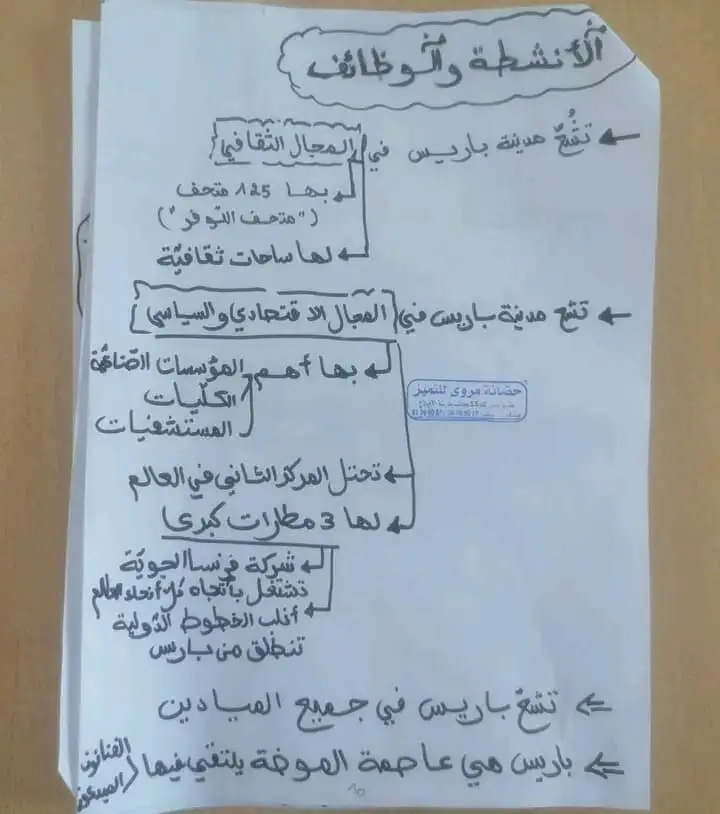 الأنشطة والوظائف
تشُعّ مدينة باريس في المجال الثقافي
بها 125 متحف
("متحف اللوفر")
لها ساحات ثقافيّة
تشع مدينة باريس في المجال الاقتصادي والسياسي
بها أهم المؤسسات الصّناعيّة
الكلّيات
المستشفيات
تحتل المركز الثاني في العالم
لها 3 مطارات كبرى
شركة فرنسا الجويّة
تشتغل بأتجاه كل أنحاء العالم
أغلب الخطوط الدّولية
تنطلق من باريس
تشعّ باريس في جميع الميادين
باريس هي عاصمة الموضة يلتقي فيها الفنانون
المبدعون
حضانة مروى للتميز
10